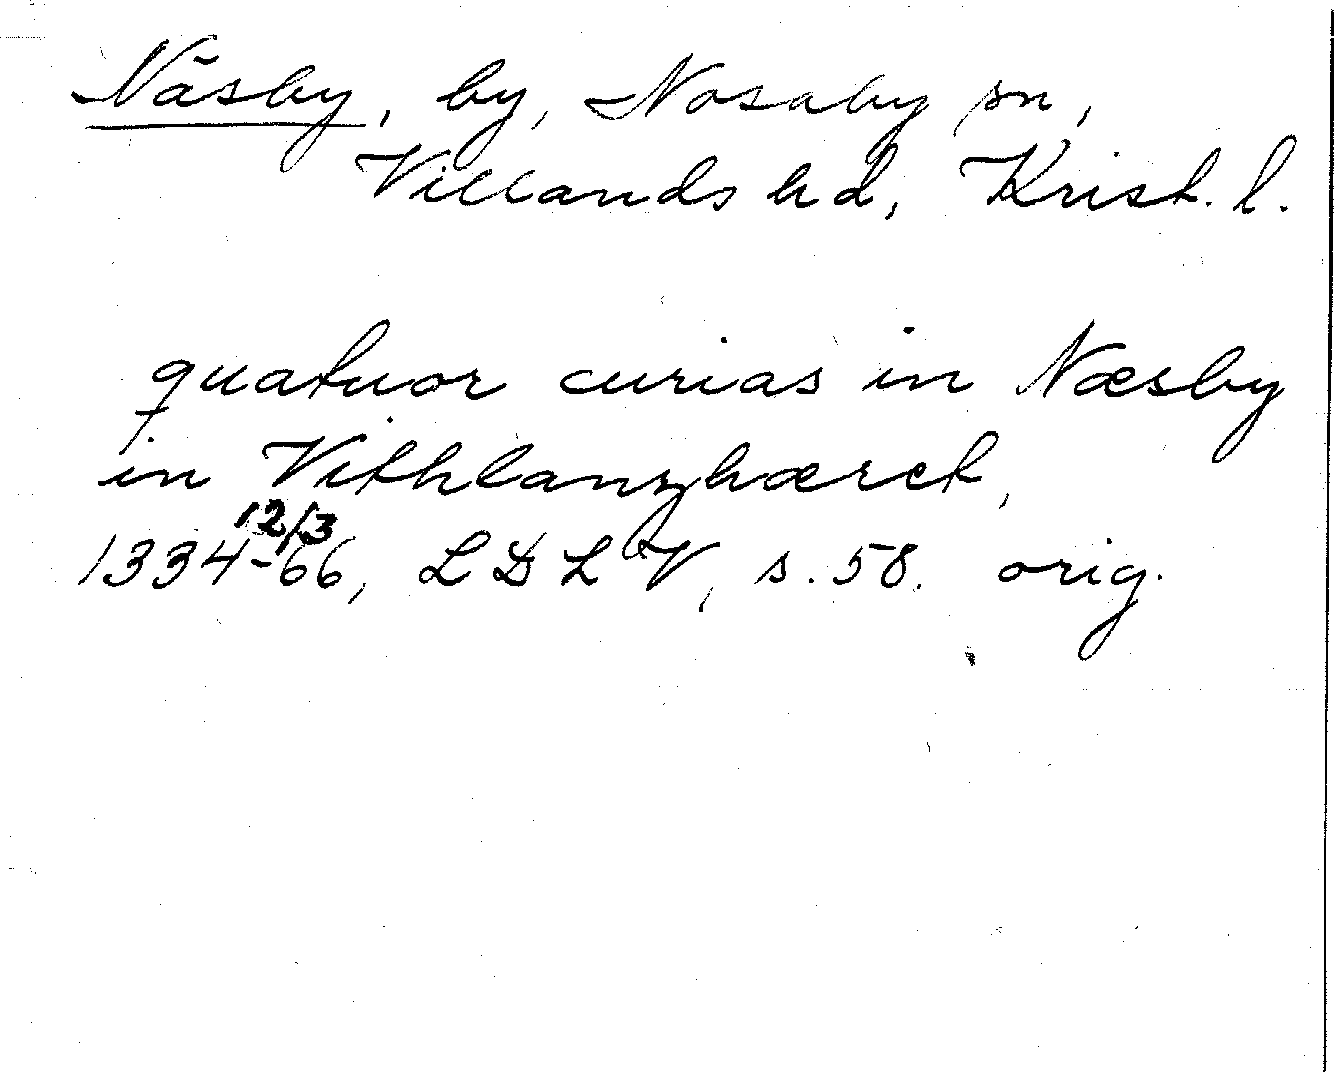 Näsby, by, Nosaby sn,
Villands hd, Krist. l.
quatuor curias in Næsby
in Vithlanzhæret,
12/3
1334-66, LDLV, s. 58. orig.